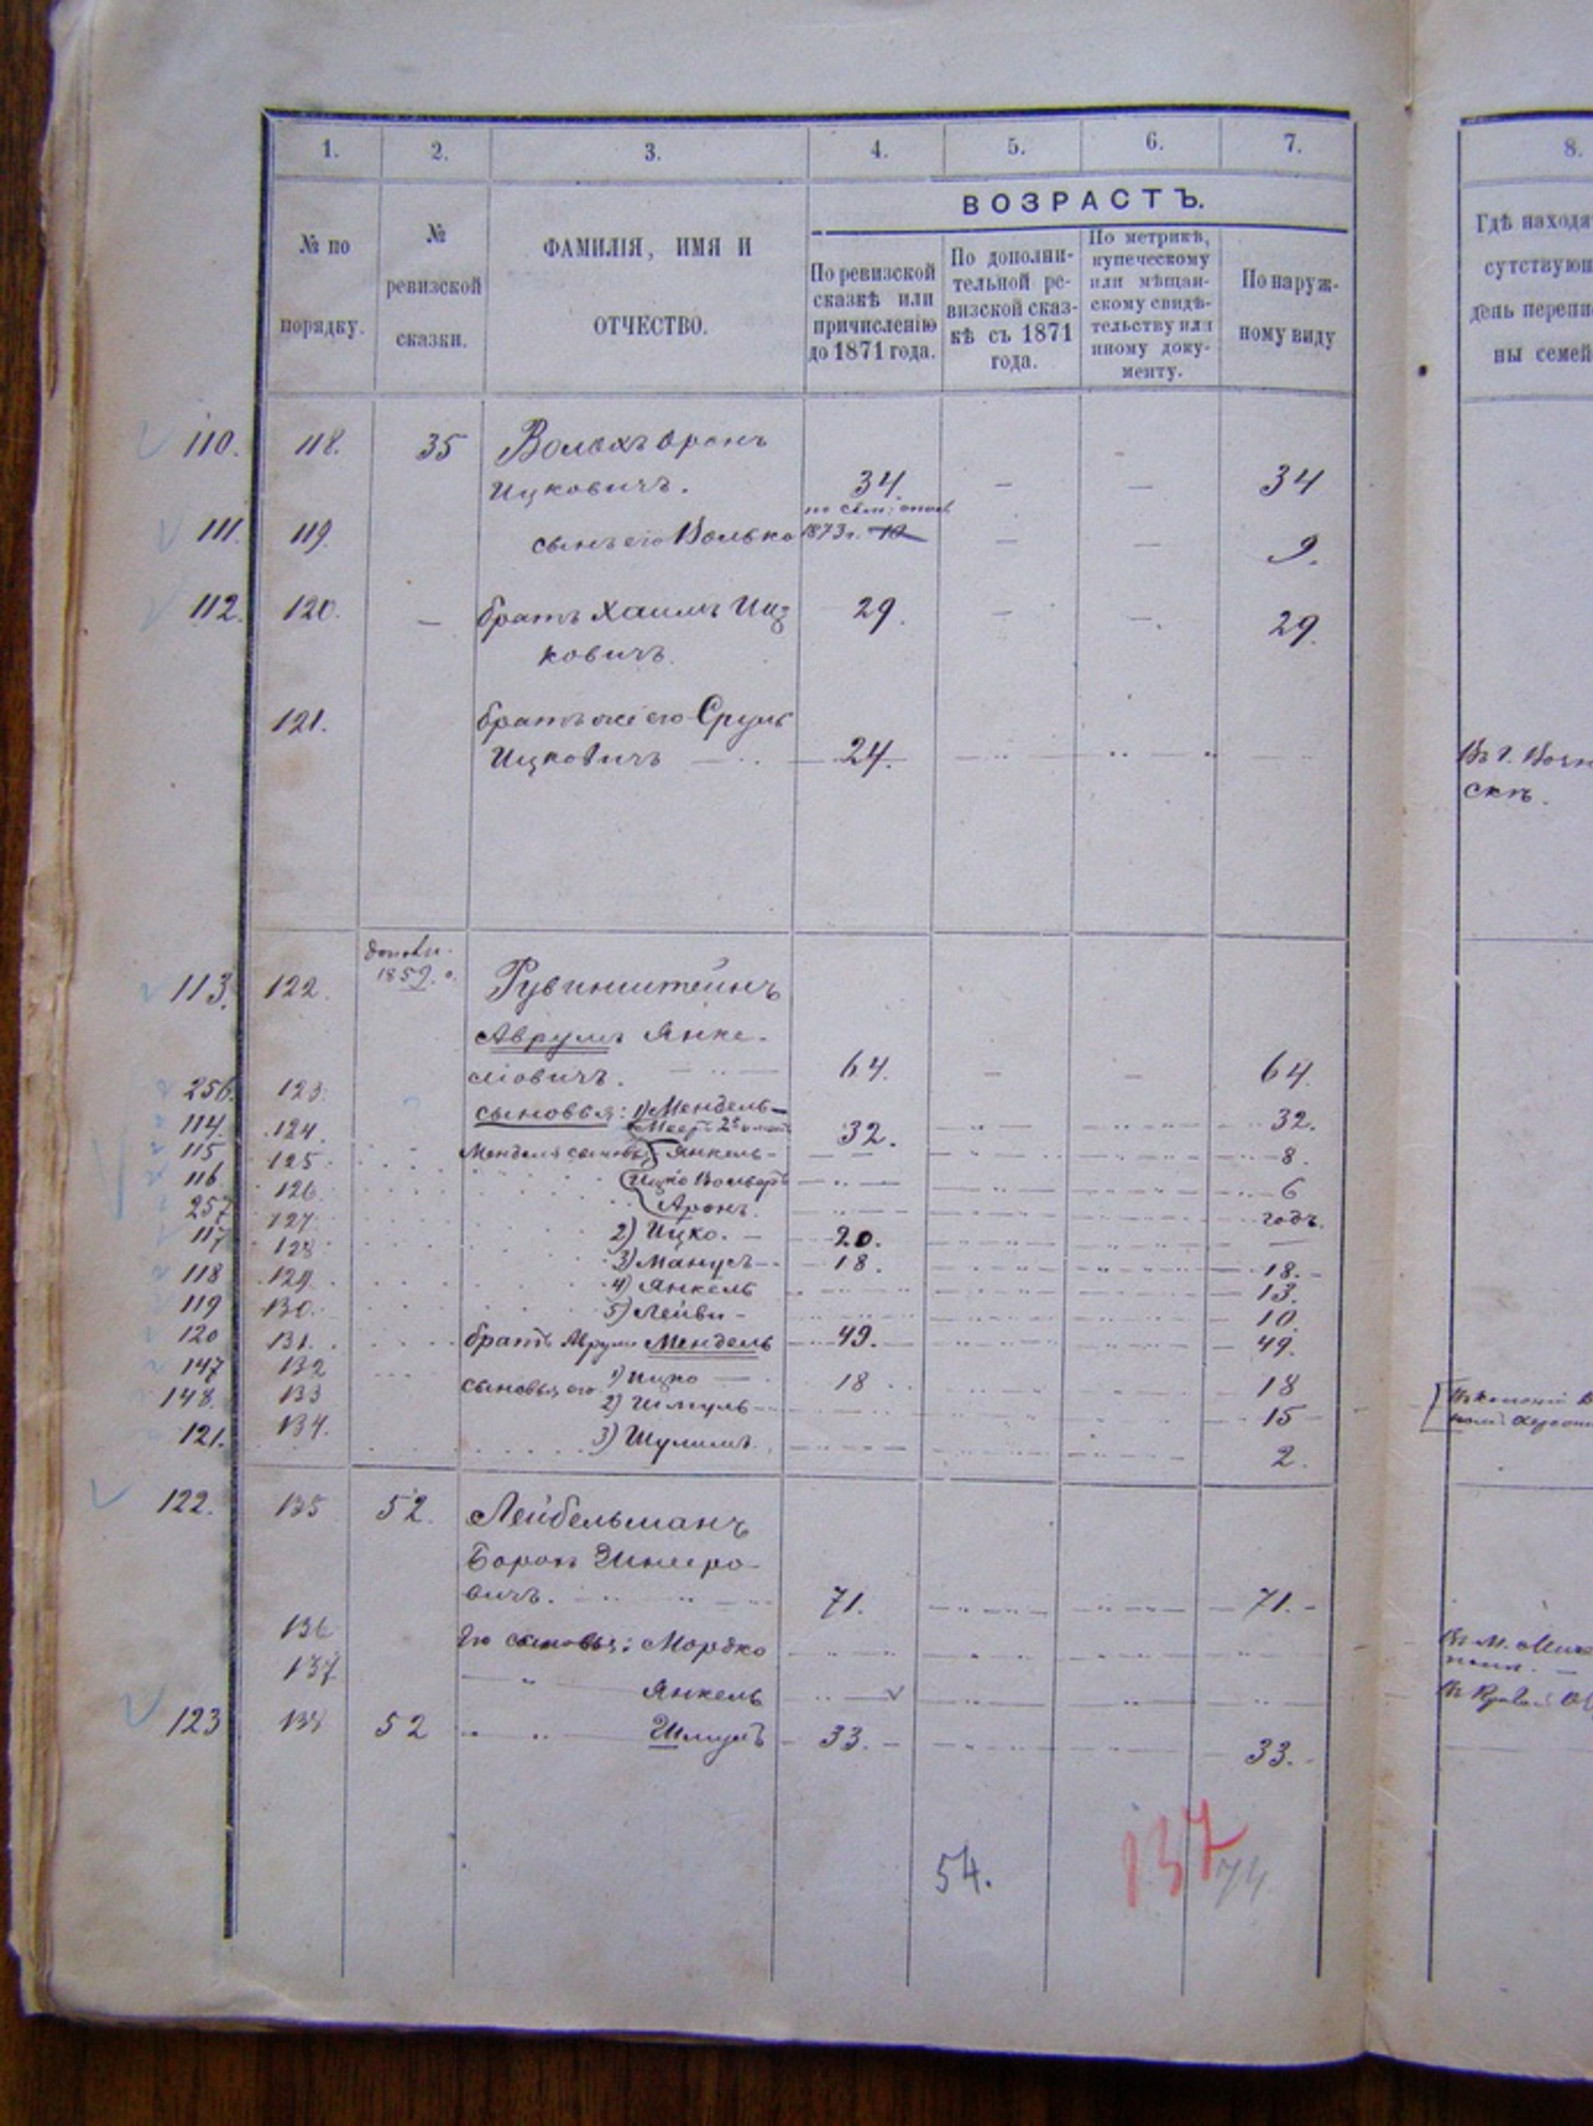 1. 2. 3. 4. 5. 6. 7. 8.
№ по порядку.
№ ревизской сказки.
ФАМИЛІЯ, ИМЯ И ОТЧЕСТВО.
ВОЗРАСТЪ.
По ревизской сказкѣ или причисленію до 1871 года.
По дополни-
тельной ре-
визской сказ-
кѣ съ 1871
года.
По метрикѣ,
купеческому
или мѣщан-
скому свидѣ-
тельству или
иному доку-
менту.
По наруж-
ному виду
Гдѣ находя
сутствующ
день перепи
ны семей
110. 118. 35 Волохъ Аронъ
Ицковичъ. 34. — — 34
111. 119. сынъ его Волько 1873 г. — — 9.
112. 120. — братъ Хаимъ Ицковичъ. 29. — — 29.
121. братъ же его Сруль
Ицковичъ 24.
Въ г.
скѣ.
113. 122. 1859. Рувинштейнъ
Аврумъ Янке-
ліовичъ. 64. — — 64.
256. 123. сыновья: 1) Мендель 32. 32.
114. 124.
115 125. Менделя сыновья Янкель 8.
116. 126. Ицко 6
257 127 Аронъ. годъ.
117 128 2) Ицко. 20.
118 129 3) Манусъ 18. 18.
119 130. 4) Янкель 13.
5) Лейви 10.
120 131. братъ Аврума Мендель 49. 49.
147 132 сыновья его 1) Ицко 18 18
148. 133 2) Шмуль 15
121. 134. 3) Шулимъ. 2.
122. 135 52. Лейбельманъ
Борох Шнееро-
вичъ. 71. 71.
136 Его сыновья: Мордко
137 Янкель
123 138 52 Шмуль 33. 33.
54. 137 74